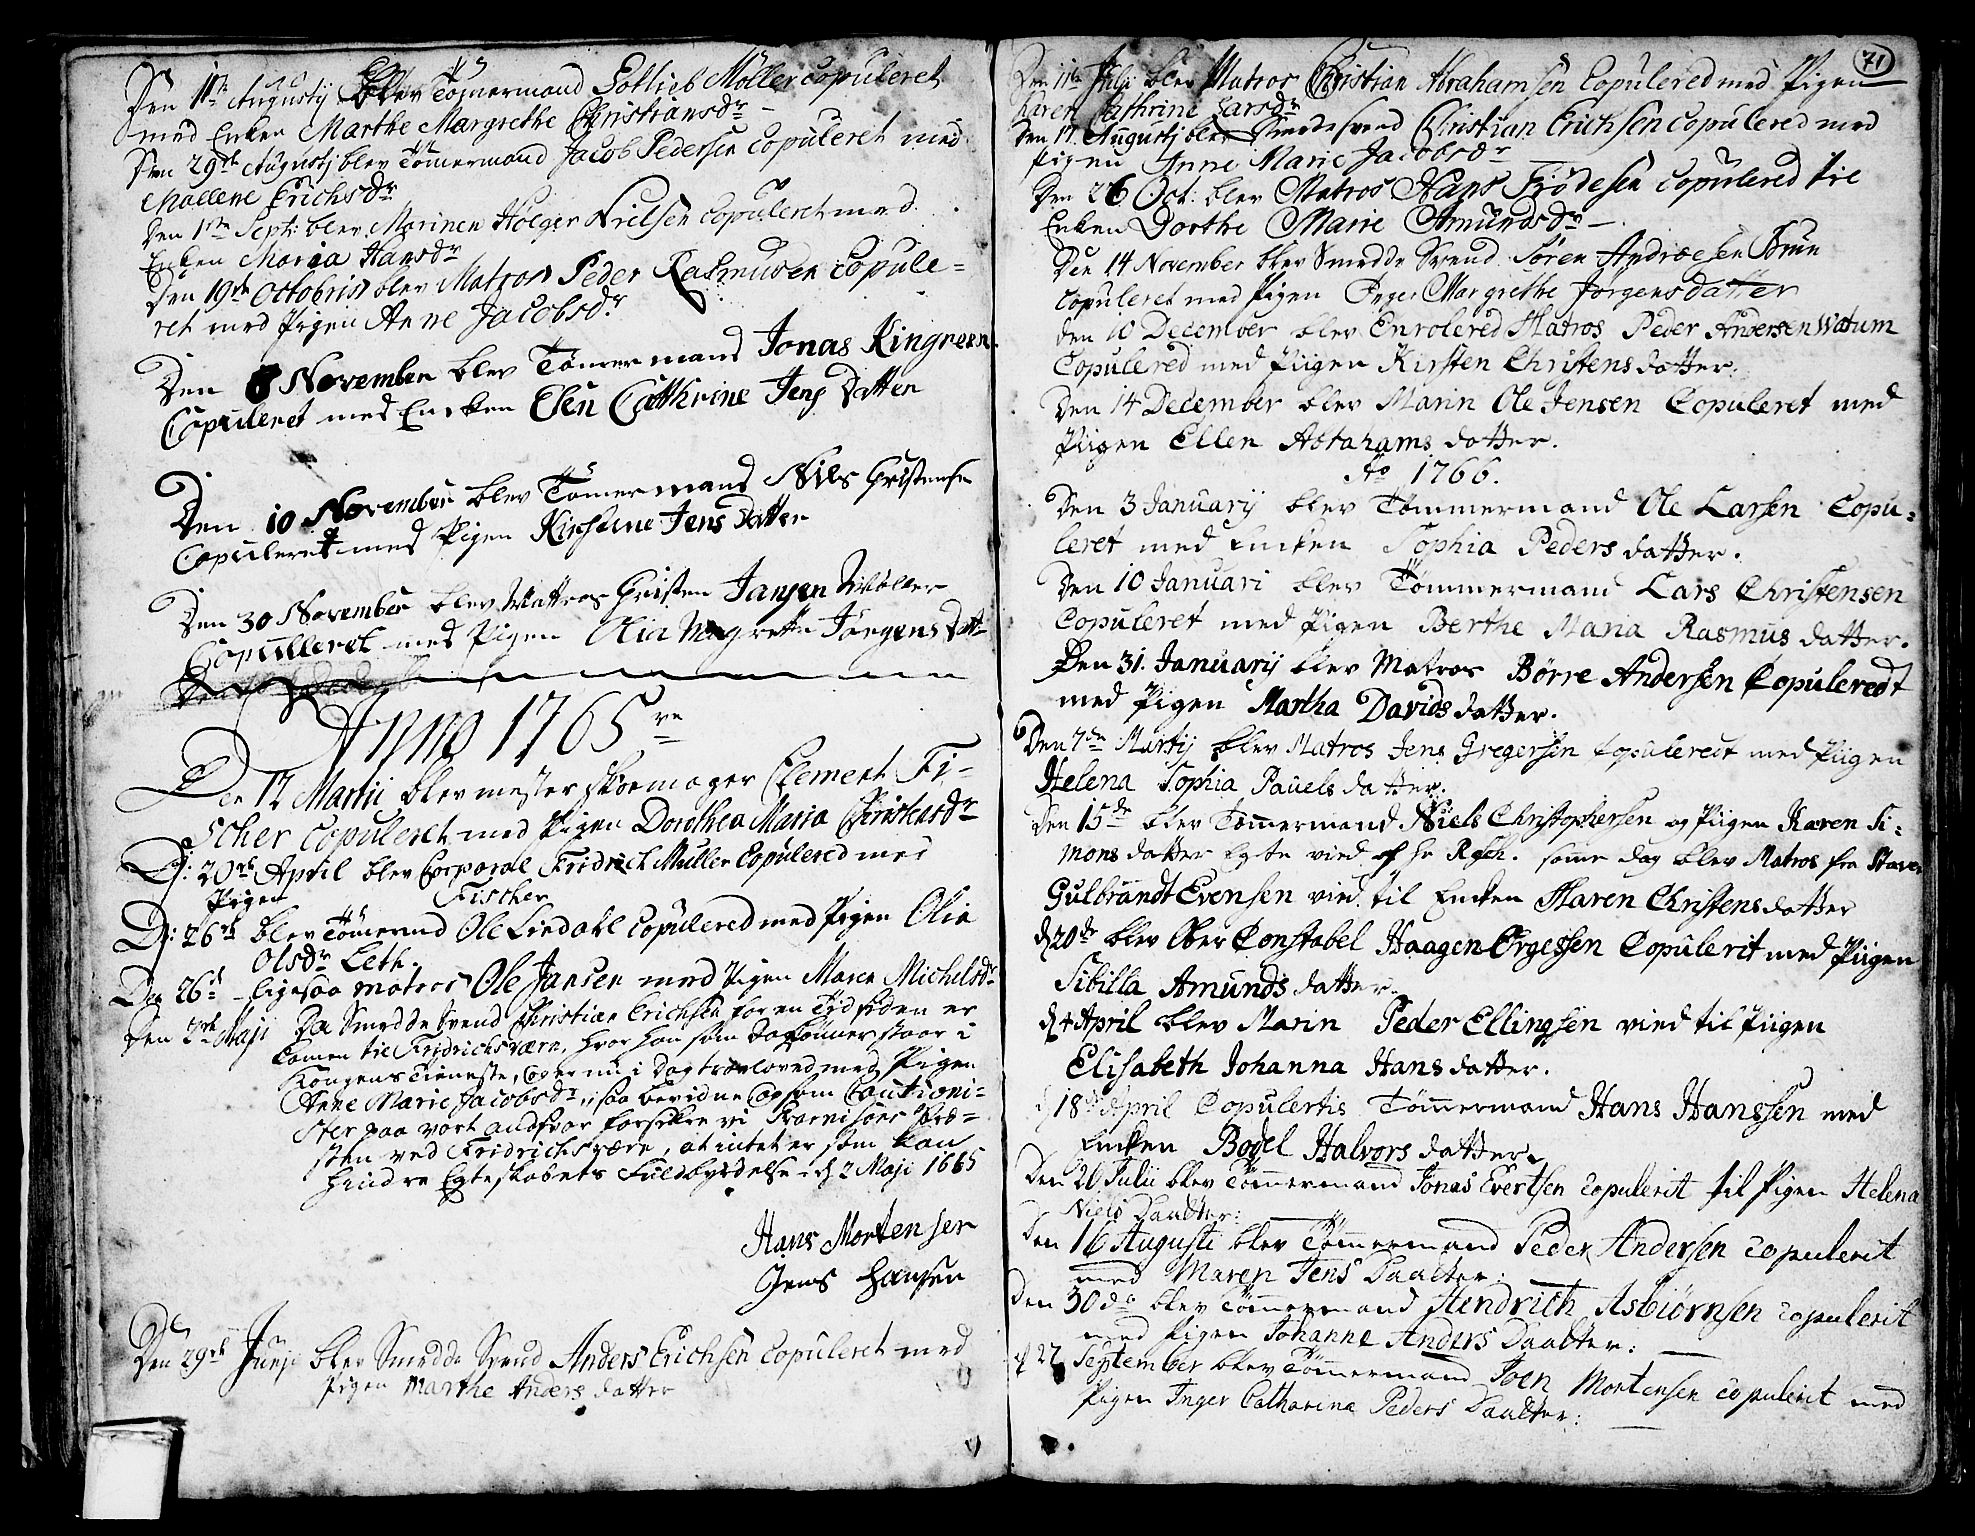 Den 11te Augustij blev Tømermand Gotlieb Møller Copuleret
med Enken Marthe Margrethe Christiansdr
Den 29de Augustij blev Tømermand Jacob Pedersen Copuleret med
Mallene Erichsdr
Den 1ste Sept: blev Marinen Holger Nielsen Copuleret med
Enken Maria Hansdr
Den 19de Octobris blev Matros Peder Rasmusen Copule=
ret med Pigen Anne Jacobsdr
Den 8 November blev Tømermand Jonas Kingreen
Copuleret med Encken Elsn Catthrine Jens Datter
Den 10 November blev Tømermand Nils Gristense
Copuleret med Pigen Kirstine Jens Datter
Den 30 November blev Mattros Gristen Jansen Møller
Copulleret med Pigen Olia Magrette Jørgens Datt
Anno 1765
Den 12 Martii blev mester skoemager Clement Fi=
scher Copuleret med Pigen Dorothea Maria Christensdr
D: 20de April blev Corporal Fridrich Muller Copulered med
Pigen Fischer
D: 26de blev Tømermd Ole Liedahl Copulered med Pigen Olia
Olsdr Leth.
Den 26de ligesaa matros Ole Jansen med Pigen Maren Michelsdr
Den 2de Maji Da Smedde Svend Christian Erichsen for en Tyd siden er
komen til Fridrichsværn, hvor han som Tømer staar i
Kongens Tieneste, og er nu i Dag troloved med Pigen
Anne Marie Jacobsdr, saa bevidne og som Cautioni=
ster paa vort andsvar forsikre vi Garnisons Præ=
sten ved Fridrichsværn, at intet er som kan
hindre Egteskabets Fuldbyrdelse. d 2 Maji 1665
Hans Mortensen
Jens Hansen
Den 29de Junji blev Smedde Svend Anders Erichsen Copuleret med
Pigen Marthe Anders datter
71
Den 11te Julji blev Matros Christian Abrahamsen Copulered med Pigen
Karen Cathrine Larsdr
Den 17 Augustj blev Smedesvend Christian Ericksen Copulered med
Pigen Anne Marie Jacobsdr
Den 26 Oct: blev Matros Hans Frødesen Copulered til
Enken Dorthe Marie Amundsdr
Den 14 November blev Smedde Svend Søren Andræsen Brun
Copuleret med Pigen Inger Margrethe Jørgensdatter
den 10 December blev Enrolered Matros Peder Andersen Watum
Copulered med Piigen Kirsten Christens datter.
Den 14 December blev Marin Ole Jensen Copuleret med
Piigen Ellen Abrahams datter.
Ao 1766.
Den 3 Januarij blev Tømmermand Ole Larsen Copu=
leret med Encken Sophia Peders datter.
Den 10 Januari blev Tømmermand Lars Christensen
Copuleret med Pigen Berthe Maria Rasmus datter.
Den 31. Januarij blev Matros Børre Andersen Copuleredt
med Pigen Martha Davids datter.
Den 7de Martij blev Matros Jens Gregersen Copuleret med Piigen
Helena Sophia Pauels datter.
Den 15de blev Tømmermand Niels Christophersen og Piigen Karen Si=
mons datter Egte vied af Hr Rsch. samme dag blev Matros fra
Gulbrandt Evensen vied til Encken Maren Christens datter
d 20de blev Ober Constabel Haagen Ørgessen Copulerit med Piigen
Sibilla Amunds datter.
d 4 April blev Marin Peder Ellingsen vied til Piigen
Elisabeth Johanna Hans datter.
d 18de April Copulertis Tømmermand Hans Hanssen med
Encken Bodel Halvors datter.
Den 20 Julii blev Tømmermand Jonas Evertsen copulerit til Pigen Helena
Niels Daatter:
Den 16 Augusti blev Tømmermand Peder Andersen copulerit
med Maren Jens Daatter:
Den 30de blev Tømmermand Hendrich Asbiørnsen copulerit
med Pigen Johanne Anders Daatter:
d 27 September blev Tømmermand Joen Mortensen copulerit med
Pigen Inger Catharina Peders Daatter: